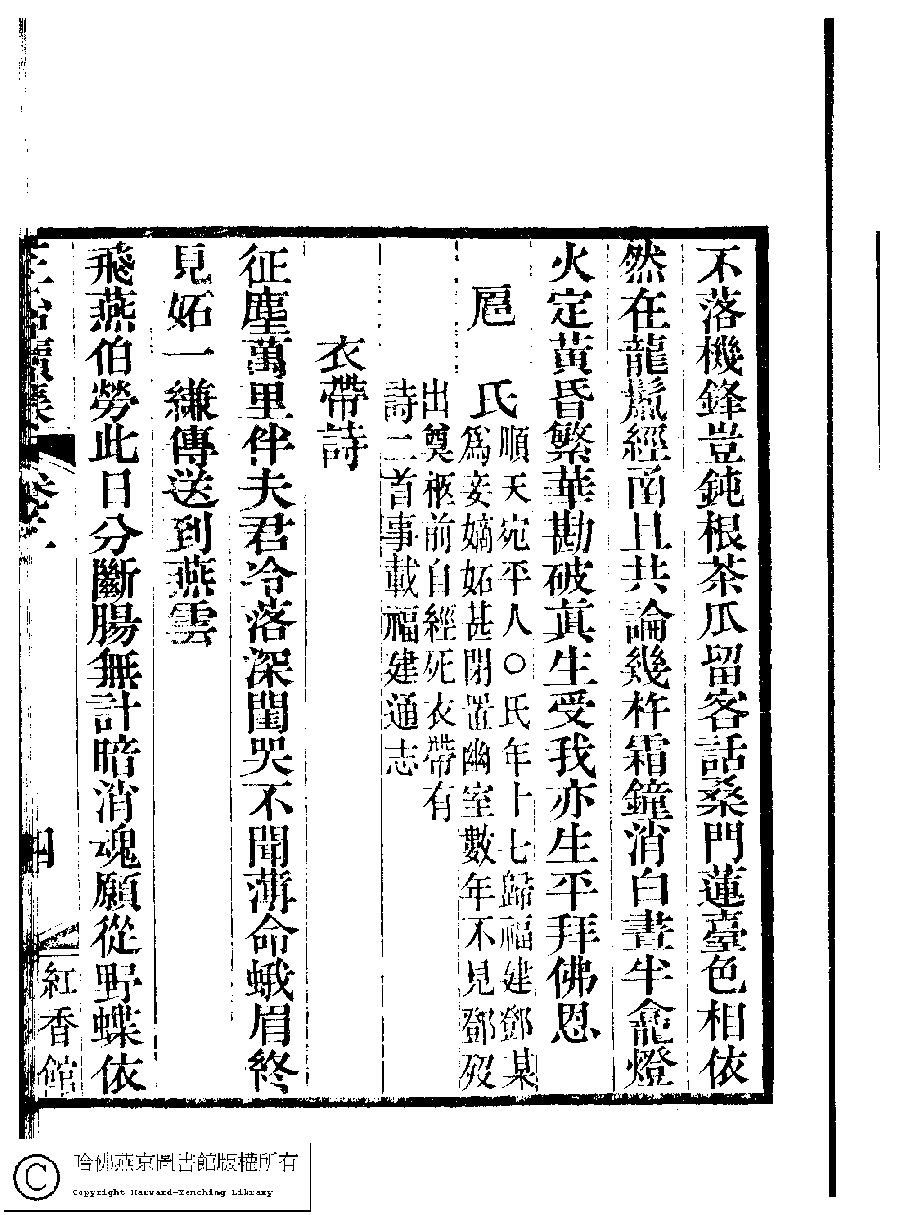 不落機鋒豈鈍根茶瓜留客話桑門蓮臺色相依
然在龍鬣經函且共論幾杵霜鐘消白晝半龕燈
火定黃昏繁華勘破眞生受我亦生平拜佛恩
扈　氏
順天宛平人○氏年十七歸福建鄧某
爲妾嫡妬甚閉置幽室數年不見鄧歿
出奠柩前自經死衣帶有
詩二首事載福建通志
衣帶詩
征塵萬里伴夫君冷落深閨哭不聞薄命蛾眉終
見妬一縑傳送到燕雲
飛燕伯勞此日分斷腸無計暗消魂願從野蝶依
續集
四
紅香館
哈佛燕京圖書館版權所有
Copyright Harvard-Yenching Library